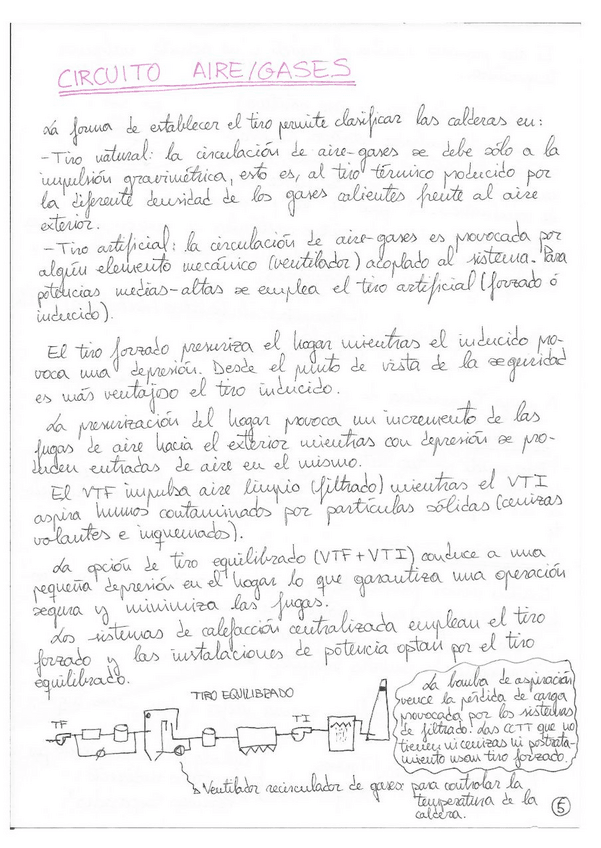 CIRCUITO AIRE/GASES
La forma de establecer el tiro permite clasificar las calderas en:
-Tiro natural: la circulación de aire-gases se debe sólo a la
impulsión gravimétrica, esto es, al tiro térmico producido por
la diferente densidad de los gases calientes frente al aire
exterior.
-Tiro artificial: la circulación de aire-gases es provocada por
algún elemento mecánico (ventilador) acoplado al sistema. Para
potencias medias-altas se emplea el tiro artificial (forzado ó
inducido).
El tiro forzado presuriza el hogar mientras el inducido pro-
voca una depresión. Desde el punto de vista de la seguridad
es más ventajoso el tiro inducido.
La presurización del hogar provoca un incremento de las
fugas de aire hacia el exterior mientras con depresión se pro-
ducen entradas de aire en el mismo.
El VTF impulsa aire limpio (filtrado) mientras el VTI
aspira humos contaminados por partículas sólidas (cenizas
volantes e inquemados).
La opción de tiro equilibrado (VTF+VTI) conduce a una
pequeña depresión en el hogar lo que garantiza una operación
segura y minimiza las fugas.
Los sistemas de calefacción centralizada emplean el tiro
forzado y las instalaciones de potencia optan por el tiro
equilibrado.
TIRO EQUILIBRADO
TF
TI
La bomba de aspiración
vence la pérdida de carga
provocada por los sistemas
de filtrado. Las CCTT que no
tienen ni cenizas ni postrata-
miento usan tiro forzado.
Ventilador recirculador de gases para controlar la
temperatura de la
caldera.
5